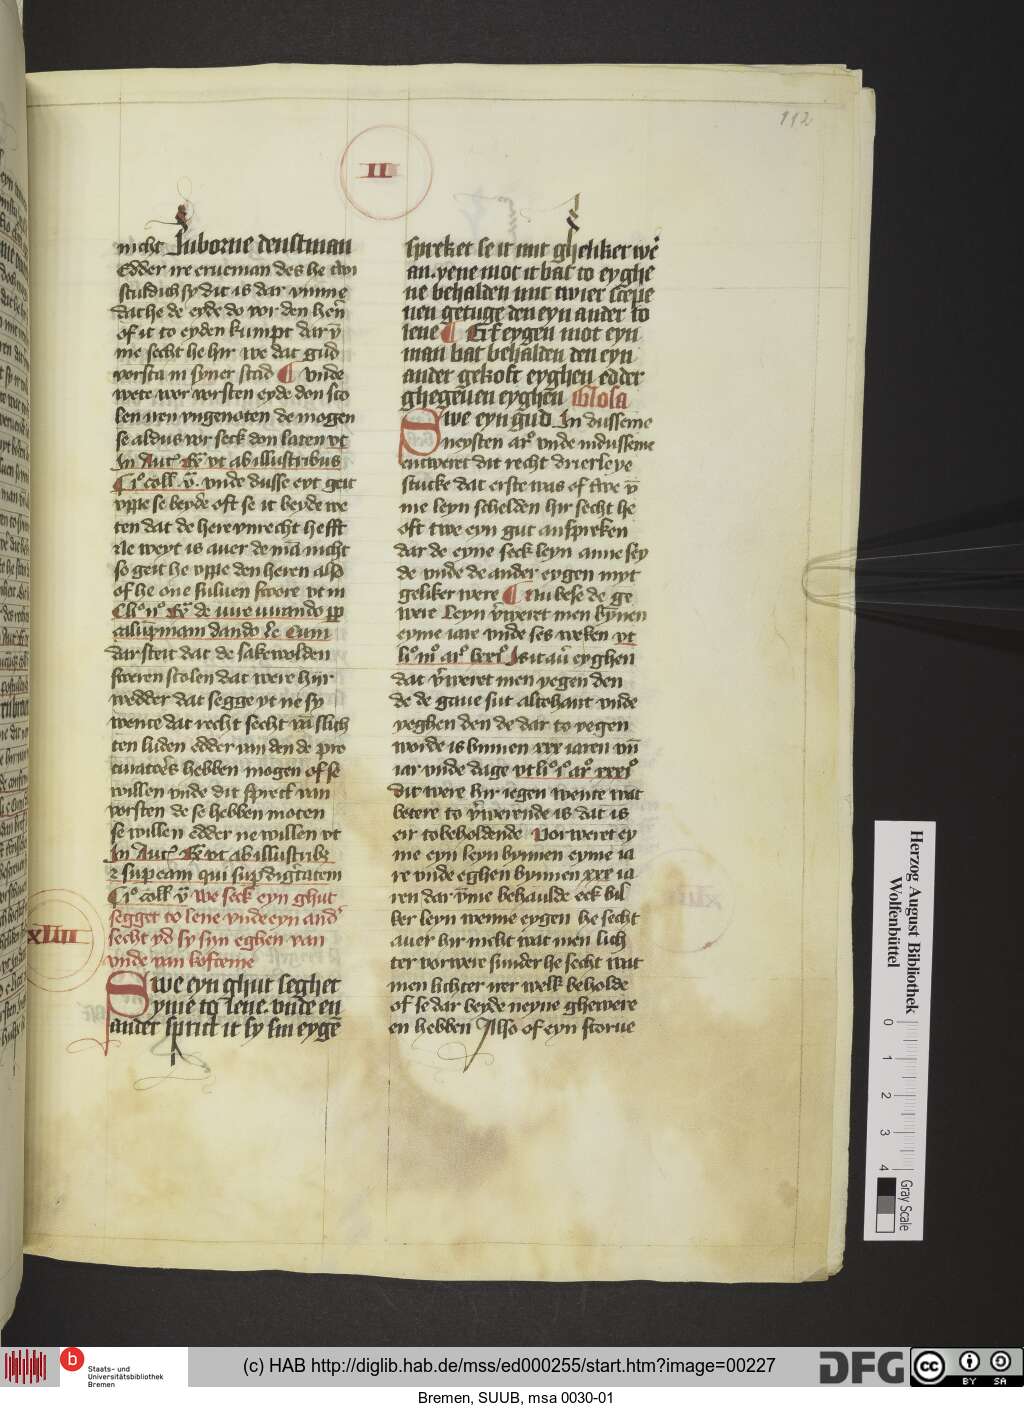 112
II
nicht Inborne denstman
Edder ire erueman des he twi
schuldich sy dit is dar vmme
dat he de eyde do vor den hen̄
of it to eyden kumpt dar v̄
me secht he hir we dat gud
vorsta in syner stad ¶ vnde
wete wor vorsten eyde don sco
len uen vngenoten de mogen
se aldus vor seck don laten vt
In Aut. ut ab illustribus
coll. vnde dusse eyt geit
vppe se beyde oft se it beyde we
ten dat de here vnrecht hefft
Ne weyt is auer de mā nicht
so geit he vppe den heren also
of he one suluen swore vt in
de iure iurando
calūpniam dando Cum
dar steit dat de sakewolden
sweren scolen dat were hir
wedder dat segge vt ne sy
wente dat recht secht vā slich
ten luden edder van den de pro
curatores hebben mogen of se
willen vnde dit sprect van
vorsten de se hebben moten
se willen edder ne willen vt
In Aut. ut ab illustribz
qui sup dignitatem
coll. We seck eyn ghut
segget to lene vnde eyn and
secht yd sy syn eghen van
vnde van kofteme
XLIII
Swe eyn ghut seghet
syme to lene. vnde en
ander sprict it sy sin eygē
spreket se it mit gheliker we
an. yene mot it bat to eyghe
ne behalden mit twier scepe
nen getuge den eyn ander to
lene ¶ Erf eygen mot eyn
man bat behalden den eyn
ander gekoft eyghen edder
ghegeuen eyghen Glosa
Swe eyn gud In dusseme
neysten ar vnde in dusseme
entweret dit recht drierleye
stucke dat erste was of twe v̄
me leyn schelden hir secht he
oft twe eyn gut anspreken
dar de eyne seck leyn anne sey
de vnde de ander eygen myt
geliker were ¶ Nu bese de ge
were Leyn v̄weret men bynnen
eyme iare vnde ses weken vt
li. ar. Is it au eyghen
dat v̄weret men yegen den
de de gaue sut altohant vnde
yeghen den de dar to yegen
worde is bynnen xxx iaren vn̄
iar vnde dage vt li. ar. xxxi
dit were hir iegen wente wat
betere to v̄werende is dat is
eir tobeholdende Vorweret ey
me eyn leyn bynnen eyme ia
re vnde eghen bynnen xxx ia
ren dar v̄me behaulde eck bil
ker leyn wenne eygen he secht
auer hir nicht wat men lich
ter vorwere sunder he secht wat
men lichter ner welk beholde
of se dar beyde neyne ghewere
en hebben Also of eyn storue
Herzog August Bibliothek
Wolfenbüttel
0 1 2 3 4
Gray Scale
b
Staats- und
Universitätsbibliothek
Bremen
(c) HAB http://diglib.hab.de/mss/ed000255/start.htm?image=00227
DFG
cc BY SA
Bremen, SUUB, msa 0030-01